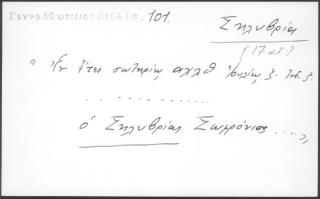 Γενναδ⟨ε⟩ιος Βιβλιοθ. 101.
Σηλυβρίας
(17 αἰ.)
"Ἐν ἔτει σωτηρίῳ αχλθ Ἰουλίῳ ζ. Ἰνδ. ζ.
. . . . . . . . . . . .
ὁ Σηλυβρίας Σωφρόνιος ....."